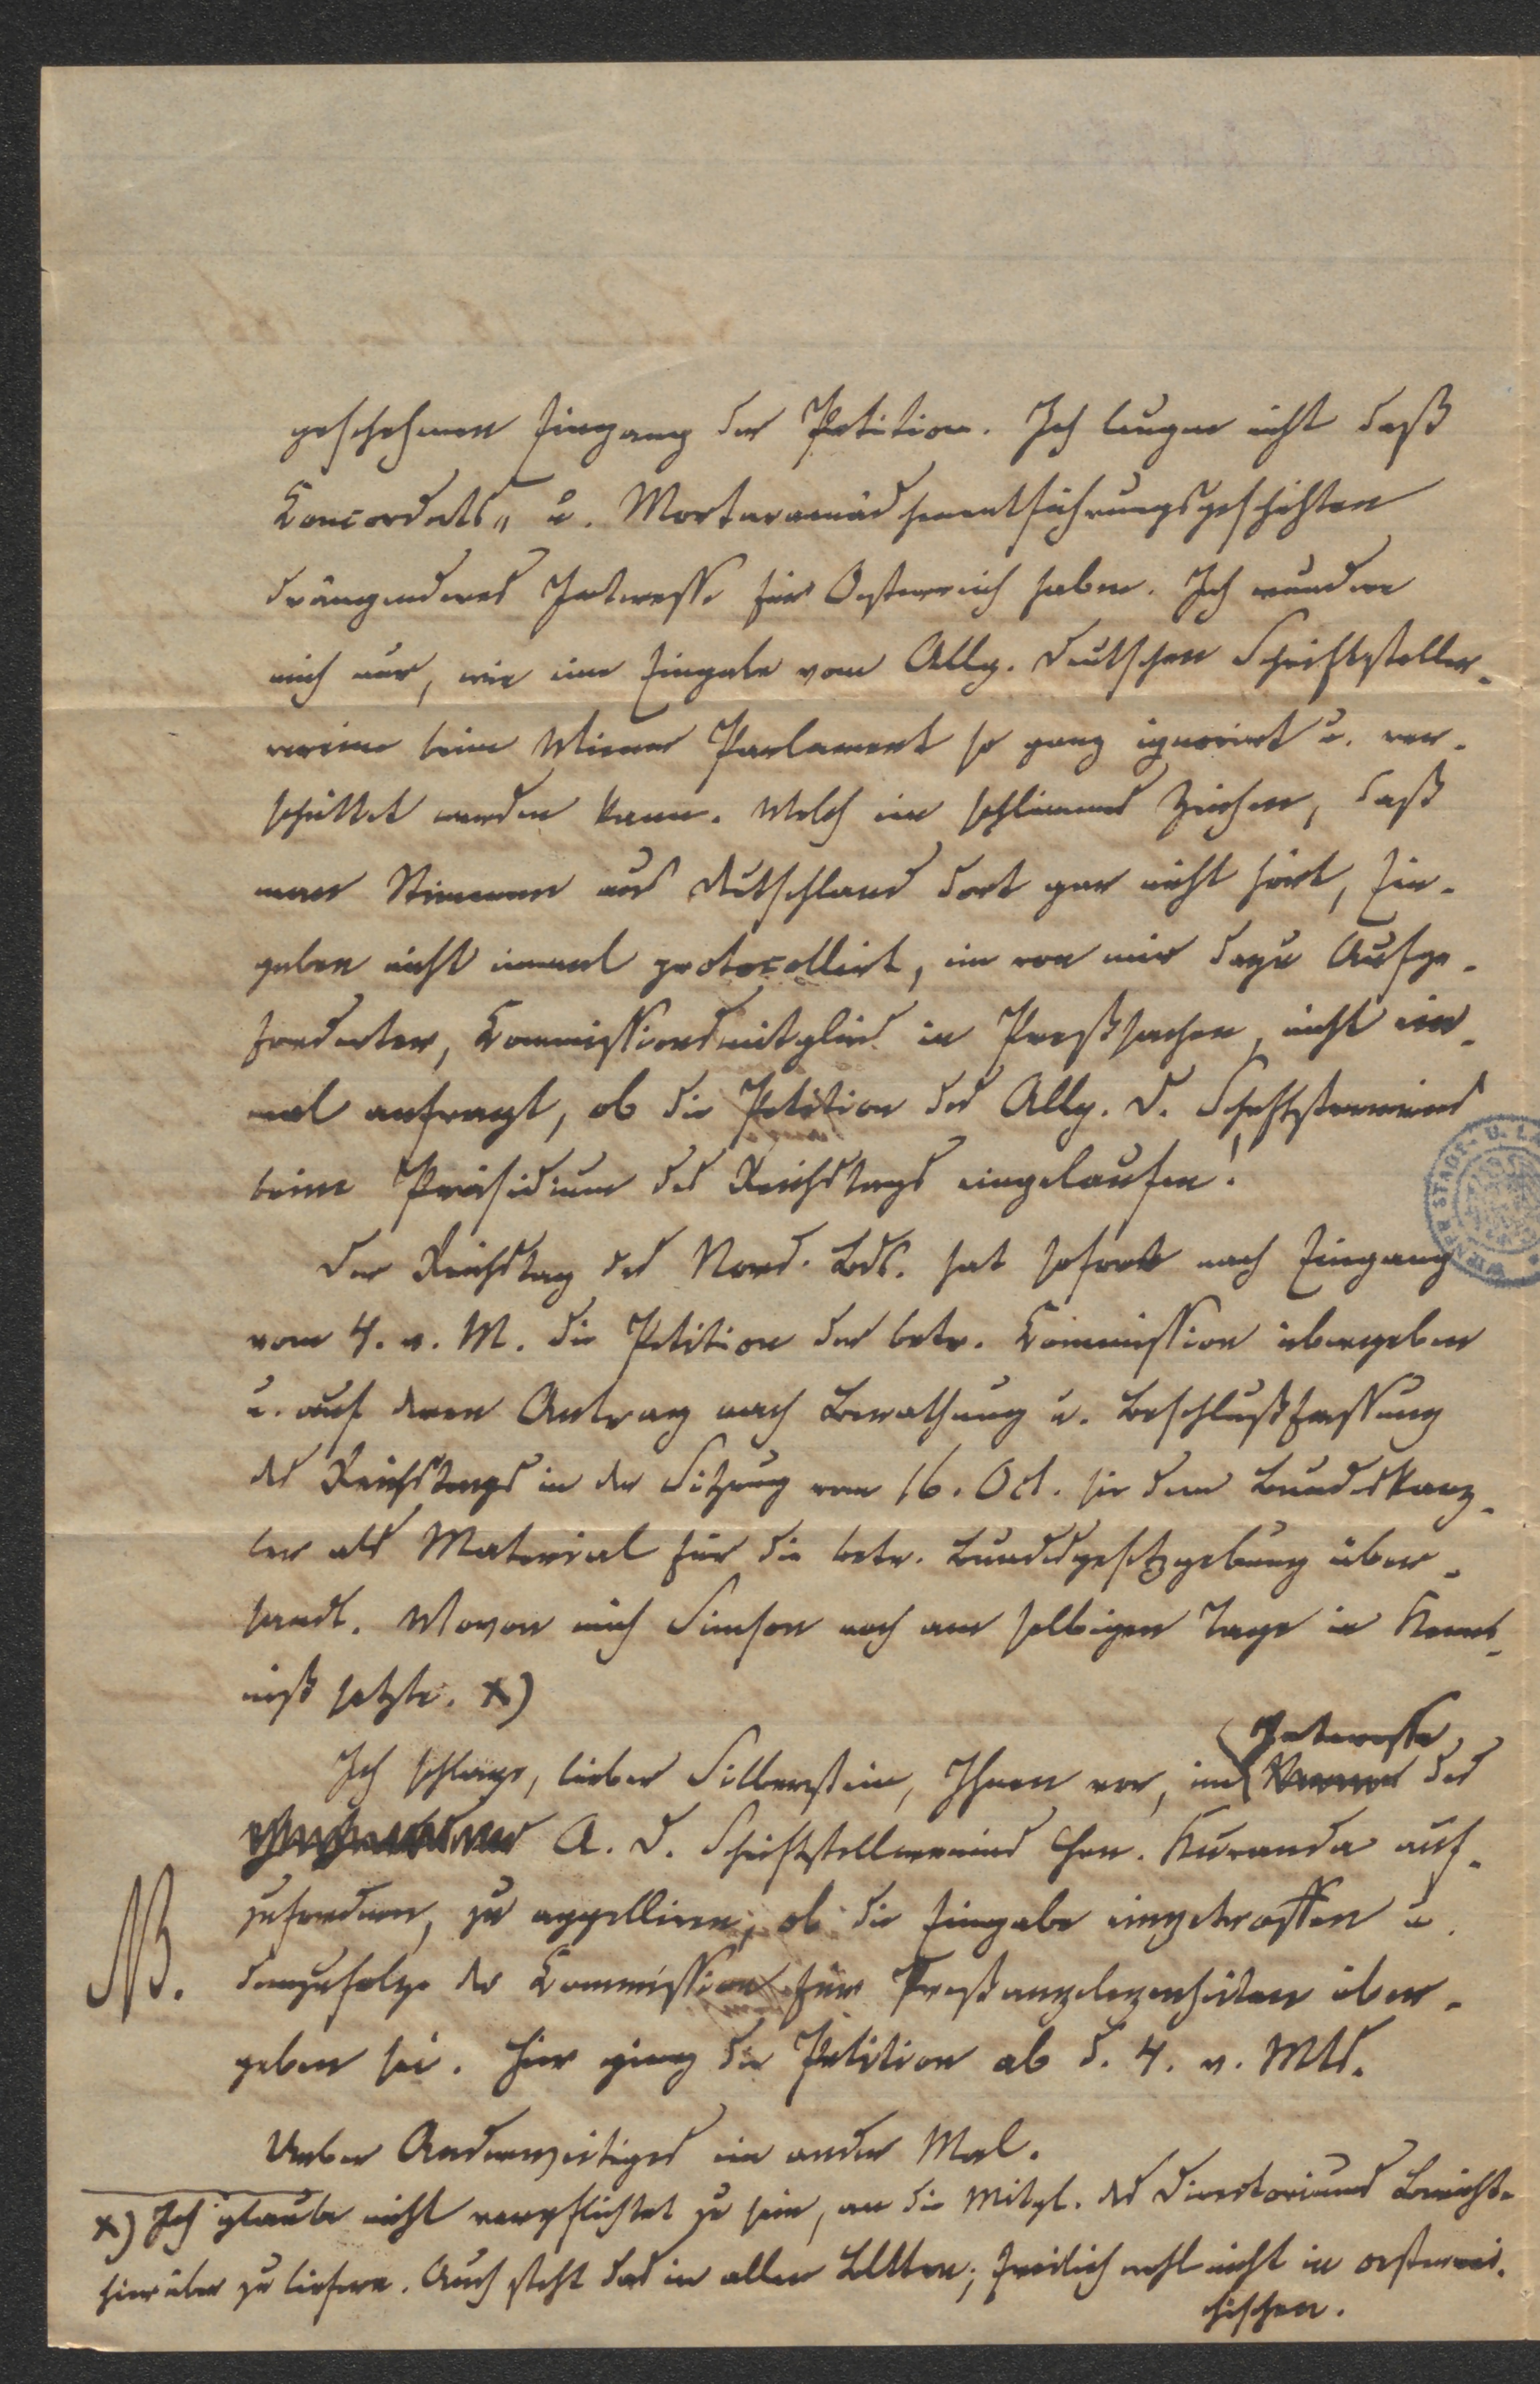 geschehenen Eingang der Petition. Ich leugne nicht daß
Concordats„ u. Mortaramädchenentführungsgeschichten
drängenderes Interesse für Oesterreich haben. Ich wundere
mich nur, wie eine Eingabe vom Allg. deutschen Schriftsteller-
vereine beim Wiener Parlament so ganz ignorirt u. ver-
schüttet werden kann. Welch ein schlimmes Zeichen, daß
man Stimmen aus Deutschland dort gar nicht hört, Ein-
gaben nicht einmal protocollirt, ein von mir dazu Aufge-
forderter, Commissionsmitglied in Preßsachen, nicht ein-
mal anfragt, ob die Petition des Allg. D. Schftstvereins
beim Präsidium des Reichstags eingelaufen!
Der Reichstag des Nord. Bds. hat sofort nach Eingang
vom 4. v. M. die Petition der betr. Commission übergeben
u. auf deren Antrag nach Berathung u. Beschlußfassung
des Reichstags in der Sitzung vom 16. Oct. sie dem Bundeskanz-
ler als Material für die betr. Bundesgesetzgebung über-
sandt. Wovon mich Simson noch am selbigen Tage in Kennt-
niß setzte. x)
Interesse
Ich schlage, lieber Silberstein, Ihnen vor, im des
A. D. Schriftstellervereins Hrn. Kuranda auf-
zufordern, zu appelliren, ob die Eingabe eingetroffen u.
NB. demzufolge der Commission für Preßangelegenheiten über-
geben sei. Hier ging die Petition ab d. 4. v. Mts.
Ueber Anderweitiges ein ander Mal.
x) Ich glaube nicht verpflichtet zu sein, an die Mitgl. des Directoriums Bericht
hierüber zu liefern. Auch steht das in allen Blttern; freilich wohl nicht in oesterrei-
chischen.
WIENER STADT- U.